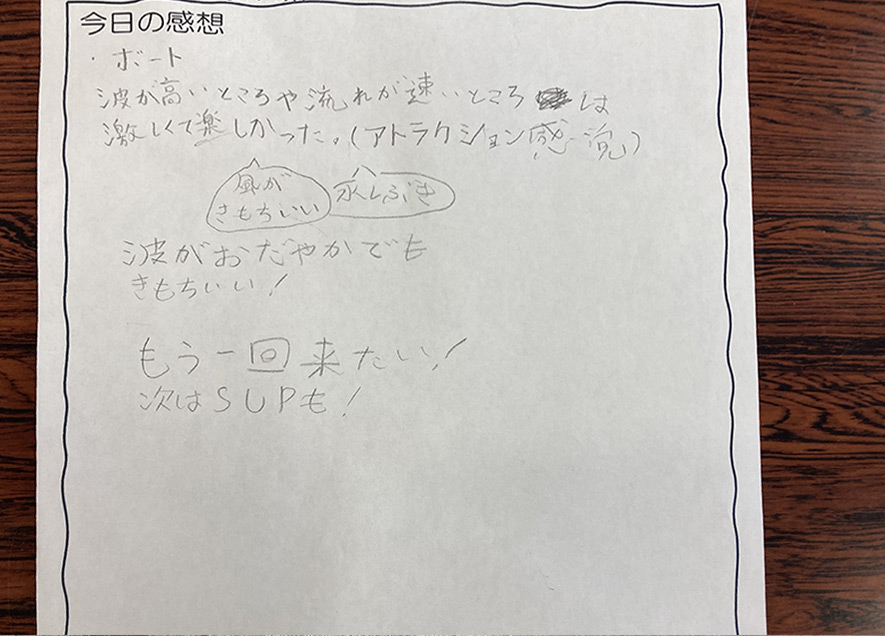 今日の感想
・ボート
波が高いところや流れが速いところは
激しくて楽しかった。(アトラクション感
風が
きもちいい
水しぶき
波がおだやかでも
きもちいい!
もう一回来たい!
次はSUPも!